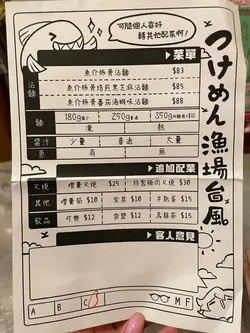 可隨個人喜好
轉其他配菜啊!
つけめん漁場台風
▶菜單
沾麵
魚介豚骨沾麵 $83
魚介豚骨焙煎黑芝麻沾麵 $85
魚介豚骨蕃茄海蝦味沾麵 $88
麵 180g 250g普通 350g
凍 熱
醬汁 少量 普通 大量
蔥 有 無
▶追加配菜
叉燒 增量叉燒 $25 特製豬肉叉燒 $30
其他 增量筍 $10 紫菜 $10 半熟蛋 $15
飲品 可樂 $12 $12 烏龍茶 $15
▶客人意見
A B C M F